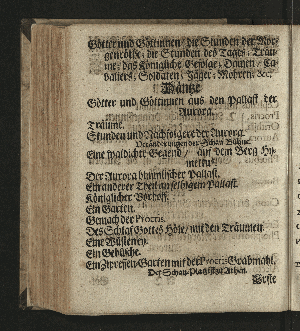 Götter und Göttinnen / die Stunden der Mor-
genröthe / die Stunden des Tages / Träu-
me / das Königliche Gefolge / Damen / Ca-
valiers / Soldaten / Jäger / Mohren / &c.
Däntze
Götter und Göttinnen aus den Pallast der
Aurora.
Träume.
Stunden und Nachfolgere der Aurora.
Veränderungen der Schau-Bühne.
Eine waldichte Gegend / auf dem Berg Hy-
mettus.
Der Aurora himmlischer Pallast.
Ein anderer Theil an selbigem Pallast.
Königlicher Vorhoff.
Ein Garten.
Gemach der Procris.
Des Schlaf-Gottes Höle / mit den Träumen.
Eine Wüsteney.
Ein Gebüsche.
Ein Zypressen-Garten mit der Procris Grabmahl.
Der Schau-Platz ist zu Athen.
Erste